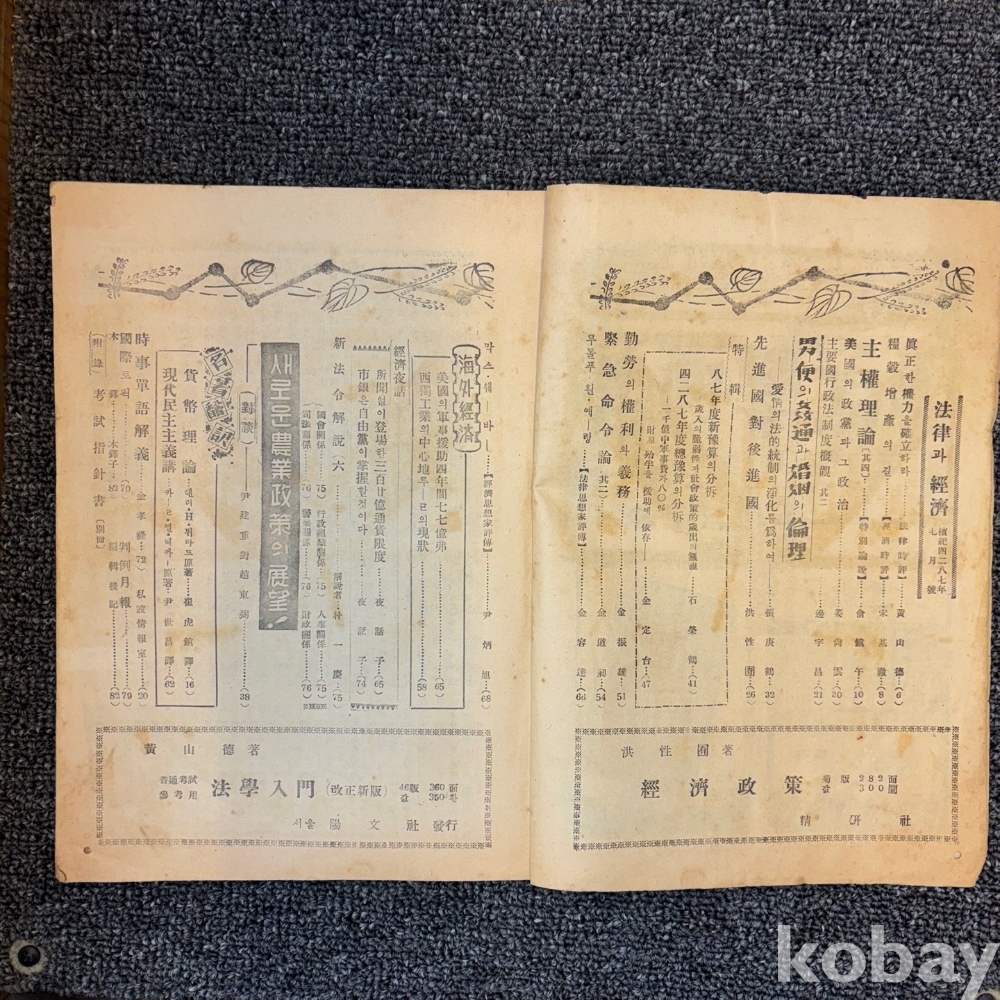 法律과 經濟
檀紀四二八七年
七月號
眞正한 權力을 確立하라【法律時評】黃山德(6)
糧穀增產의 길【經濟時評】宋基澈(8)
主權理論(其四)【特別論說】兪鎭午(10)
美國의 政黨과 그 政治 姜尙雲(30)
主要國行政法制度槪觀 其二 邊宇昌(21)
男便의 姦通과 婚姻의 倫理
愛情의 法的統制의 淨化를 爲하여 張庚鶴 32
先進國對後進國 洪性囿(26)
特輯
八七年度新豫算의 分析
歲入의 脆弱性과 社會政策的歲出의 石榮鶴(41)
四二八七年度總豫算의 分析
一千億中軍事費가 八〇%
財源 殆半을 援助에 依存 金定台 47
勤勞의 權利와 義務 金振雄 51
緊急命令論(其二) 金道昶(54)
루돌프·원·예—링【法律思想家評傳】金容達(66)
洪性囿著
經濟政策 菊版 382面 값 300圜
精研社
막스·웨—바【經濟思想家評傳】尹炳旭(68)
海外經濟
美國의 軍事援助四年間七七億弗(65)
西獨工業의 中心地루—르의 現狀(58)
經濟夜話
所聞없이 登場한 三百廿億通貨限度 夜話子(65)
市銀은 自由黨이 掌握한 것이다 夜話子(74)
新法令解說(六) 解說者 朴一慶(75)
國會關係(75) 行政組織關係(75) 人事關係(75)
司法關係(76) 警察關係(76) 財政關係(76)
새로운 農業政策의 展望!!
(對談) 尹建重對趙東弼(38)
名著飜訳
貨幣理論 헨리·H·뷔라드原著 崔虎鎭譯(16)
現代民主主義講 카—ㄹ·벸카—原著 尹世昌譯(62)
時事單語解義 金孝祿(72) 私設情報室(20)
國際토픽(70) 判例月報 79
木鐸 木鐸子 82 編輯後記(82)
(附錄) 考試指針書(別冊)
黃山德著
普通考試參考用 法學入門(改正新版) 46版 360面 값 350圜
서울 陽文社 發行
kobay